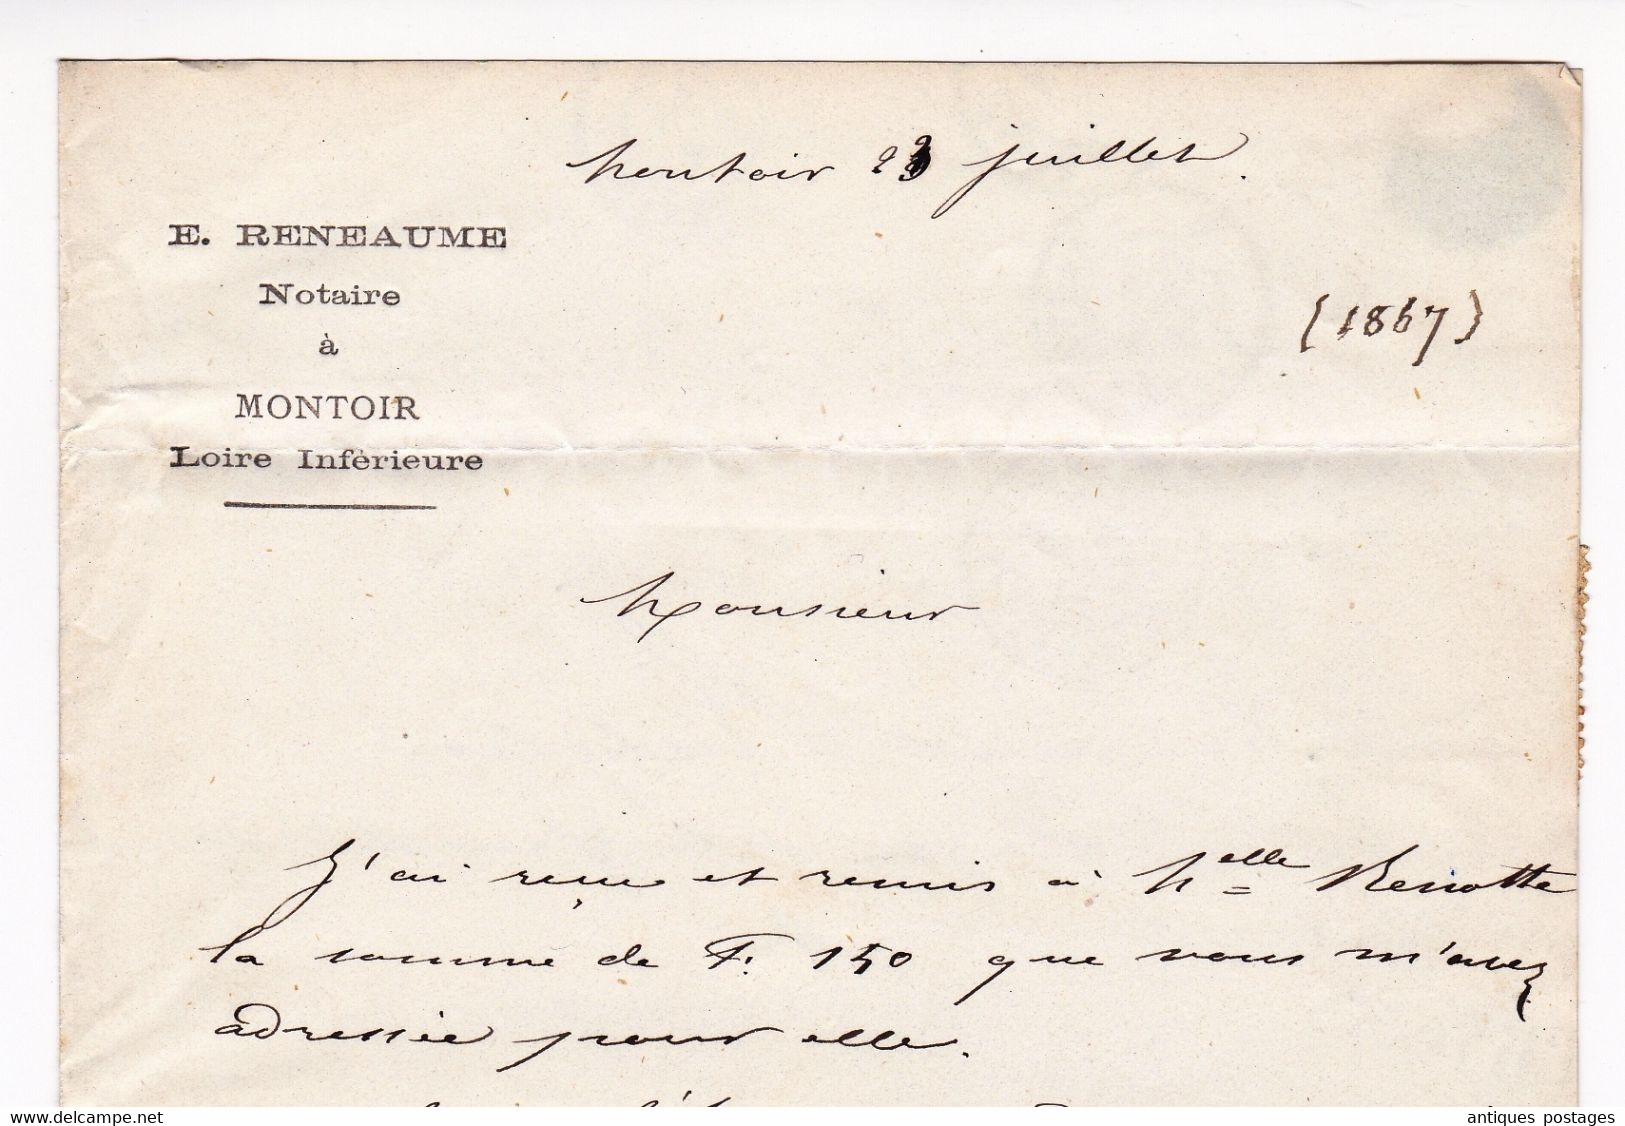 Montoir 23 juillet.
E. RENEAUME
Notaire
à
MONTOIR
Loire Inférieure
(1867)
Monsieur
J'ai reçu et remis à Melle
la somme de F. 150 que vous m'avez
adressée pour elle.
www.delcampe.net
antiques postages